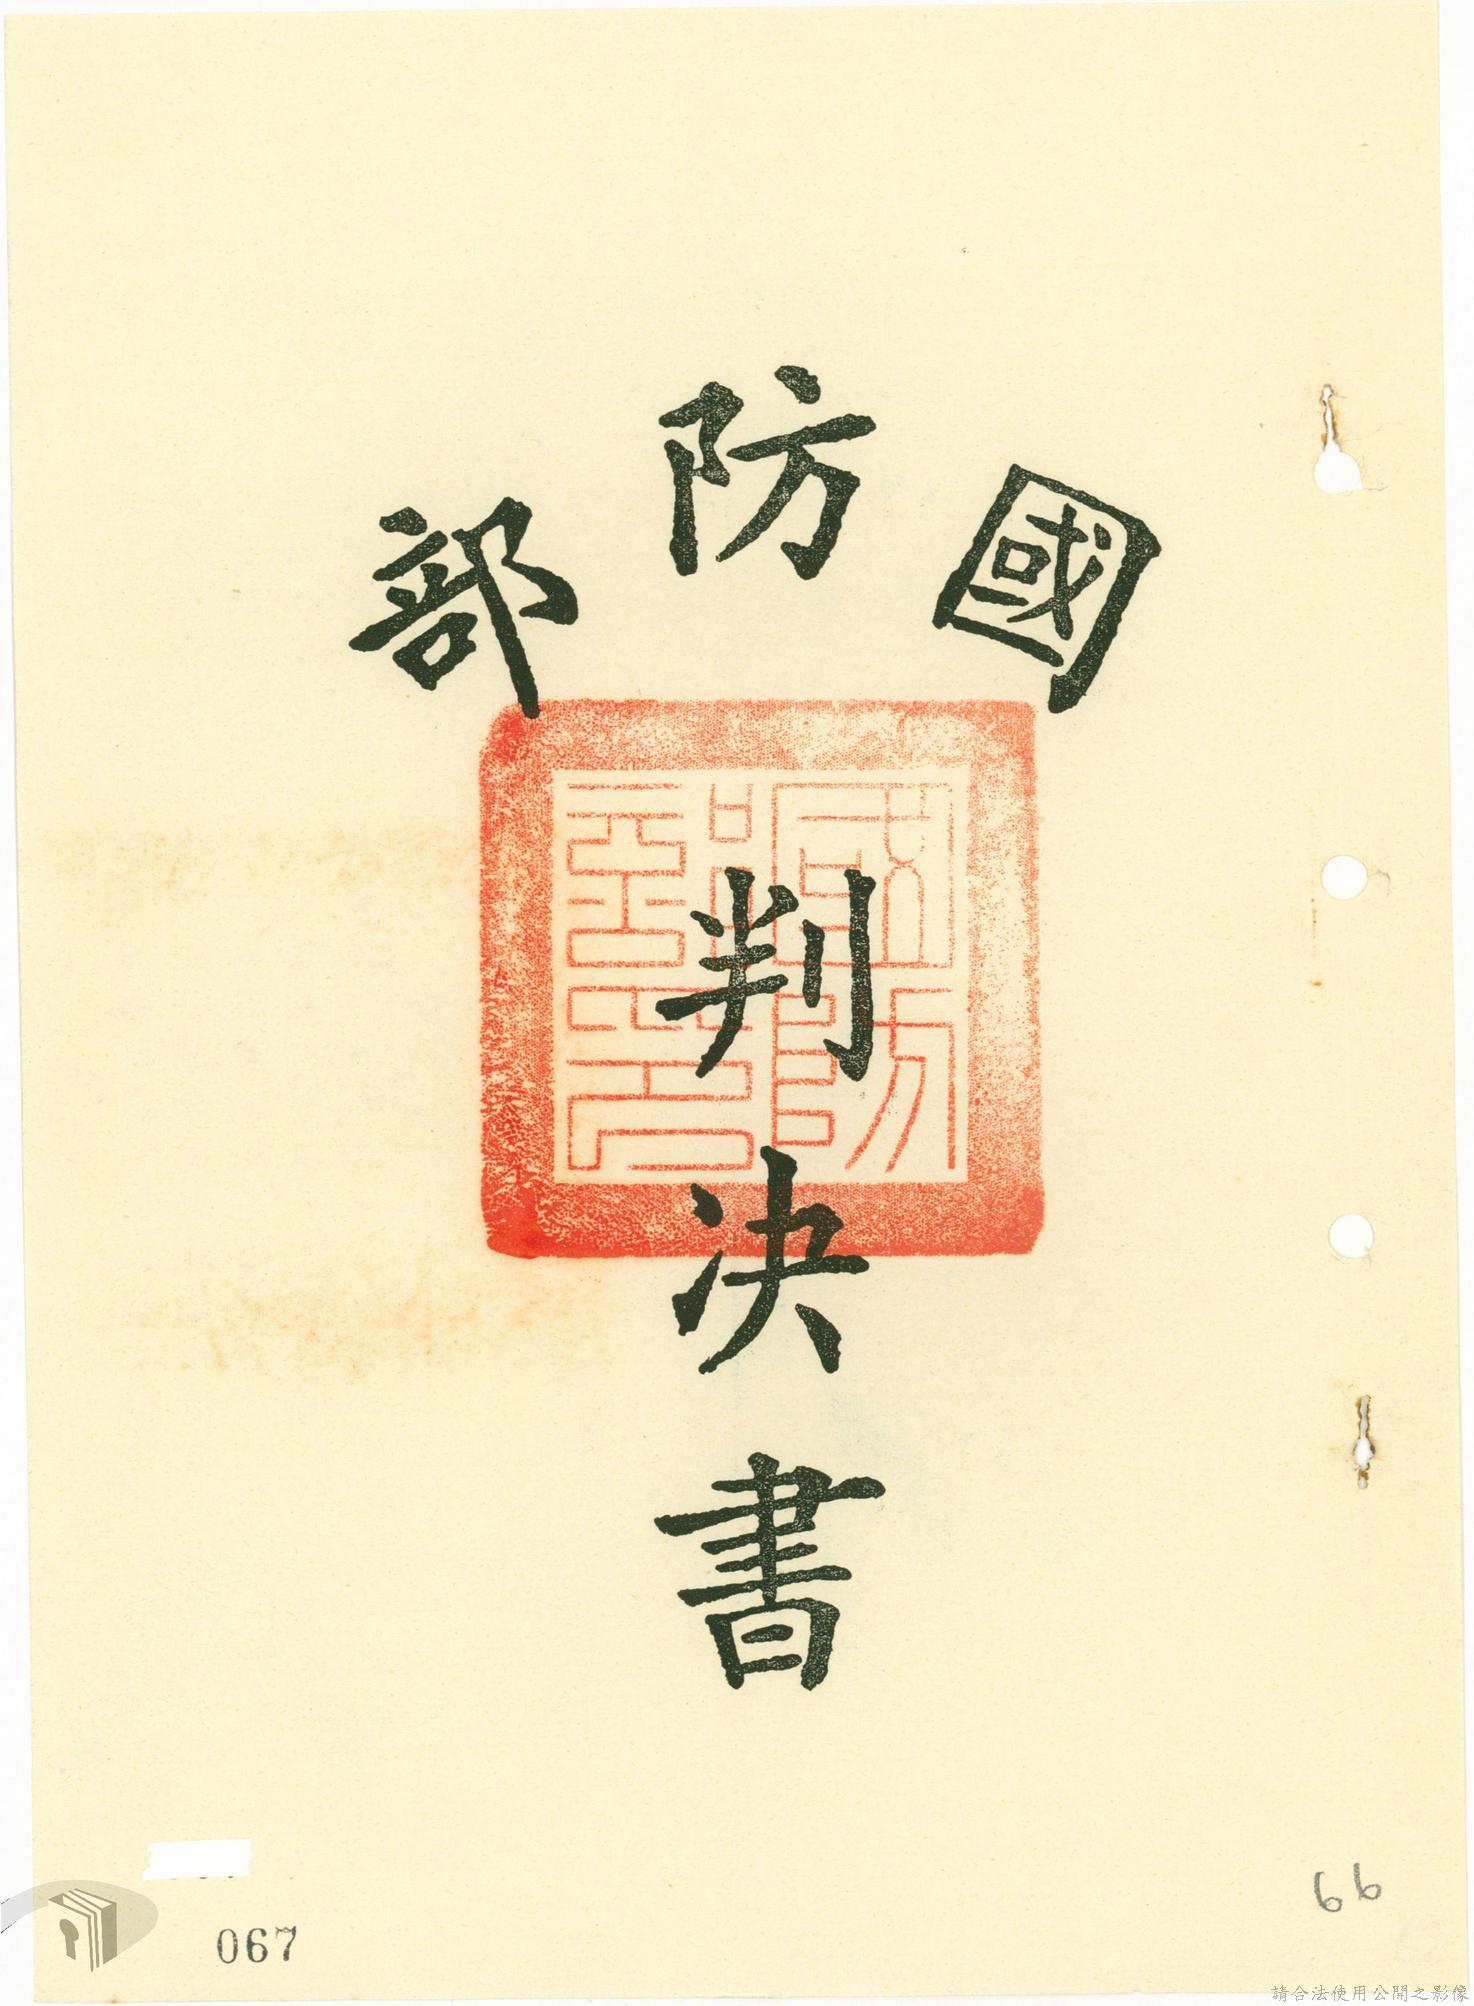 國防部
判決書
國防部印
067
66
請合法使用公開之影像